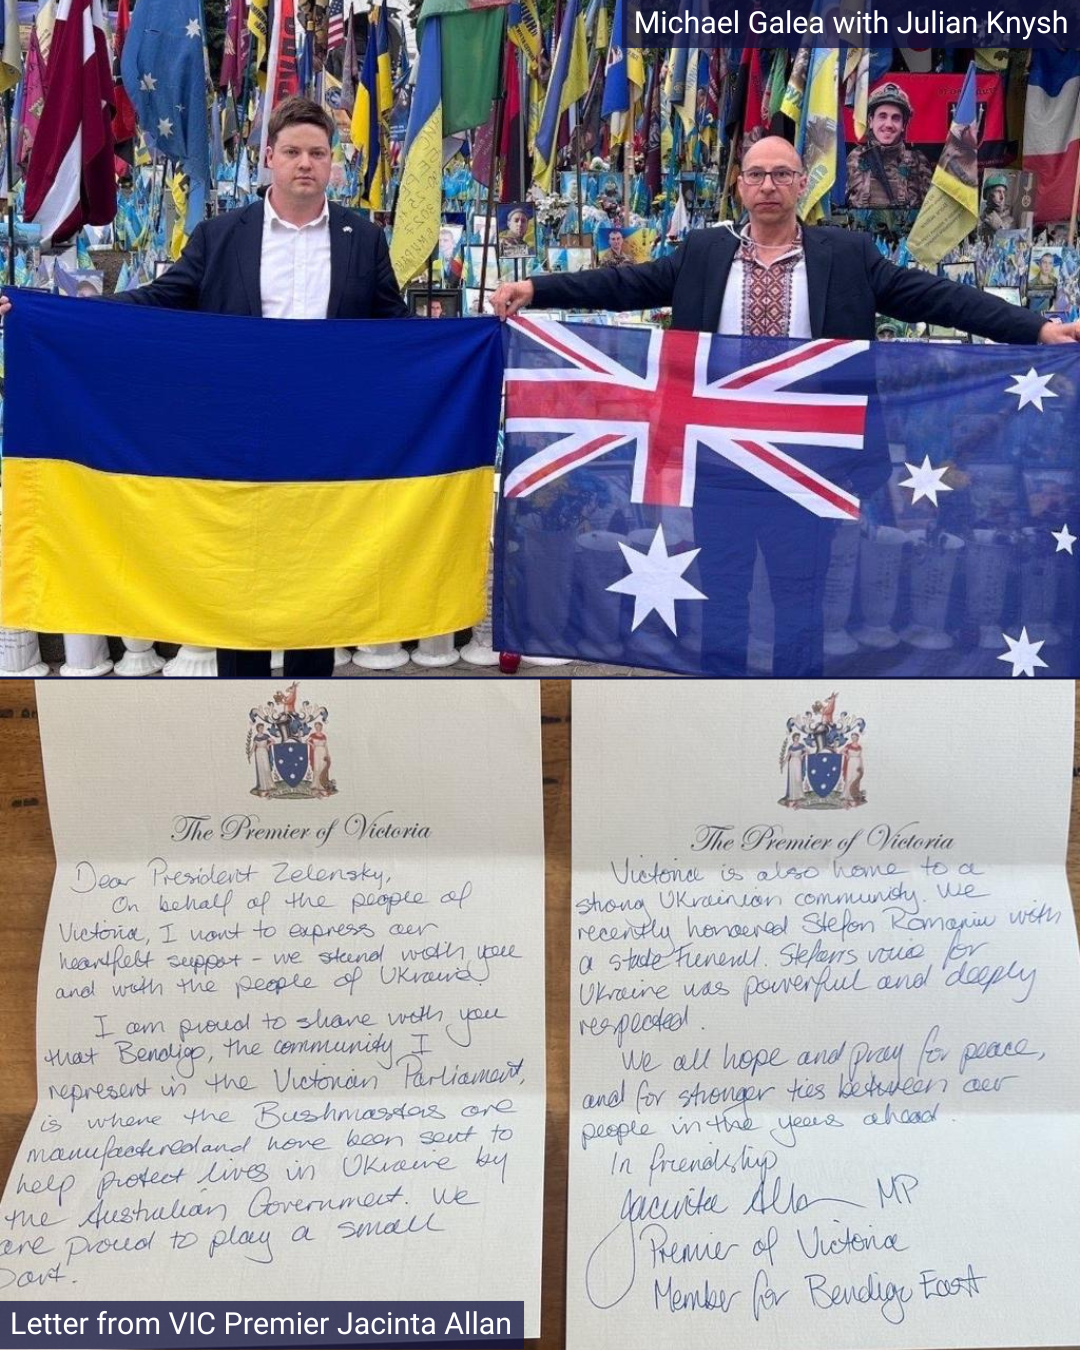 Michael Galea with Julian Knysh
The Premier of Victoria
Dear President Zelensky,
On behalf of the people of
Victoria, I want to express our
heartfelt support - we stand with you
and with the people of Ukraine.
I am proud to share with you
that Bendigo, the community I
represent in the Victorian Parliament,
is where the Bushmasters are
manufactured and have been sent to
help protect lives in Ukraine by
the Australian Government. We
are proud to play a small
part.
The Premier of Victoria
Victoria is also home to a
strong Ukrainian community. We
recently honoured Stefan Romaniw with
a state funeral. Stefans voice for
Ukraine was powerful and deeply
respected.
We all hope and pray for peace,
and for stronger ties between our
people in the years ahead.
In friendship
Jacinta Allan MP
Premier of Victoria
Member for Bendigo East
Letter from VIC Premier Jacinta Allan